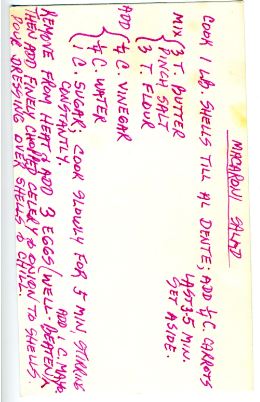 MACARONI SALAD
COOK 1 LB. SHELLS TILL AL DENTE; ADD ½ C. CARROTS
LAST 3-5 MIN.
SET ASIDE.
MIX { 3 T. BUTTER
PINCH SALT
3 T FLOUR
ADD { ½ C. VINEGAR
½ C. WATER
1 C. SUGAR; COOK SLOWLY FOR 5 MIN STIRRING
CONSTANTLY.
REMOVE FROM HEAT & ADD 3 EGGS (WELL-BEATEN)
ADD 1 C. MAYO.
THEN ADD FINELY CHOPPED CELERY & ONION TO SHELLS.
POUR DRESSING OVER SHELLS & CHILL.